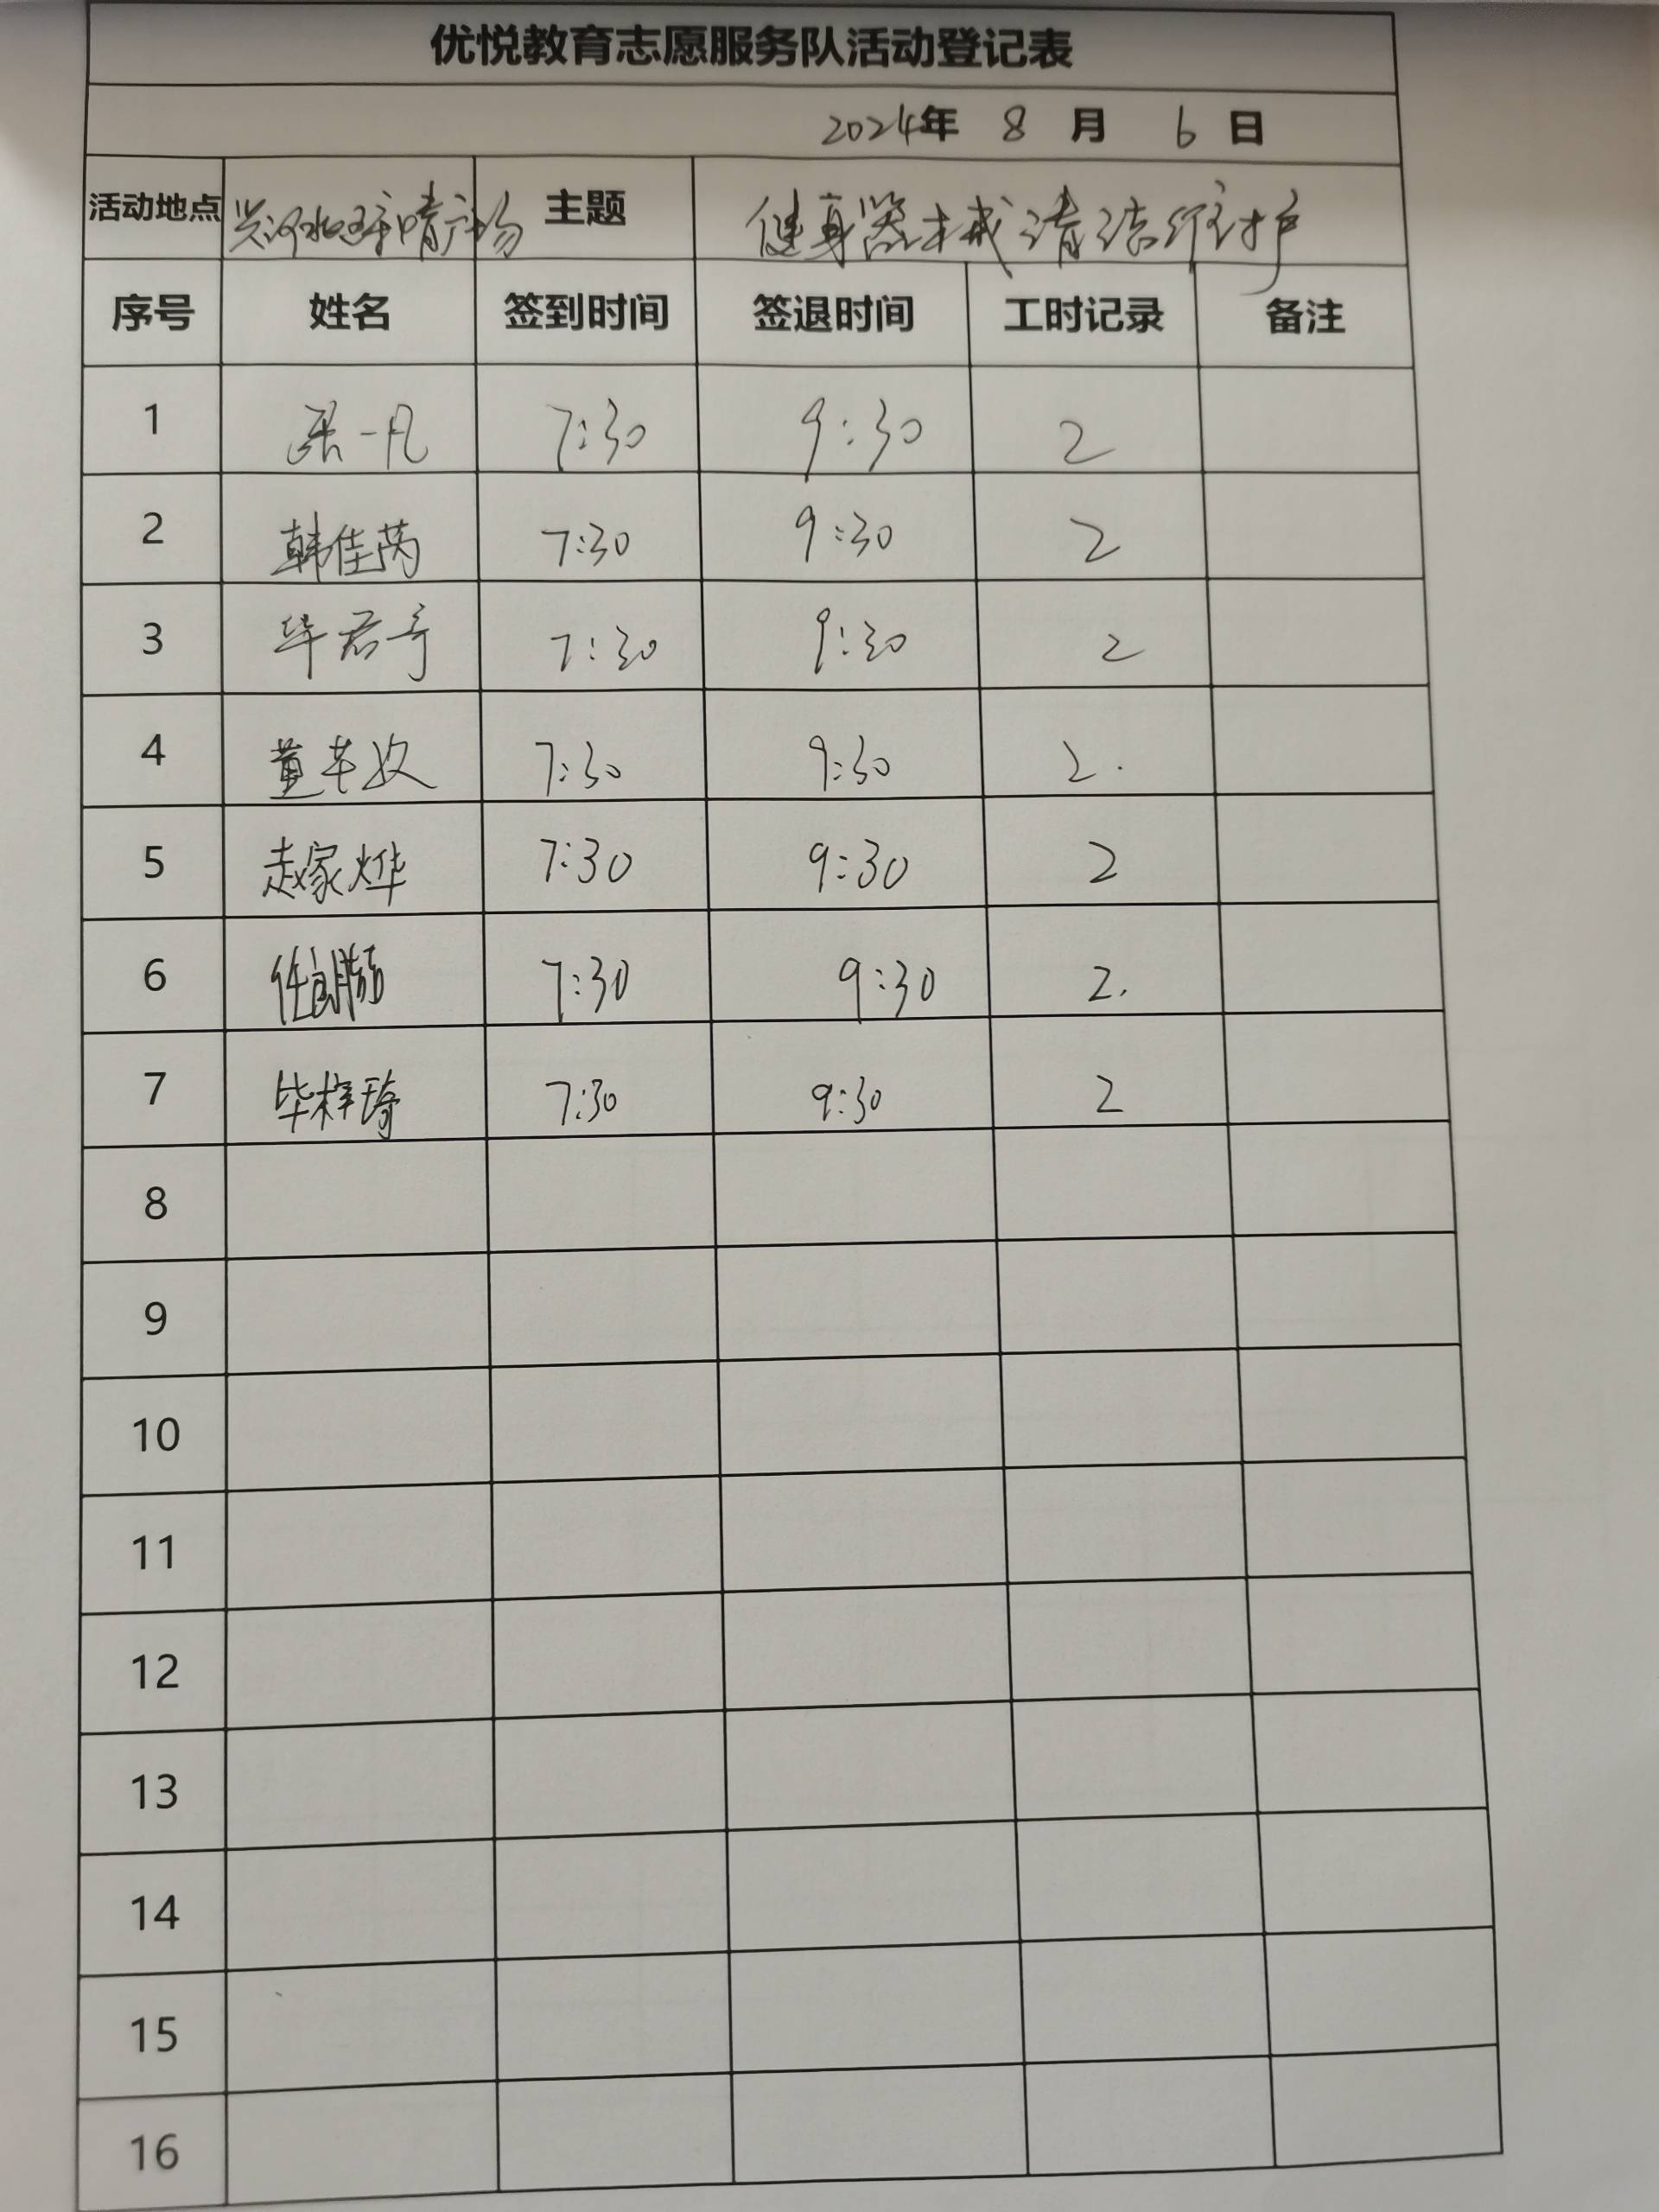 优悦教育志愿服务队活动登记表
2024年 8 月 6 日
活动地点 主题 健身器材械清洁维护
序号 姓名 签到时间 签退时间 工时记录 备注
1 一凡 7:30 9:30 2
2 韩佳芮 7:30 9:30 2
3 毕君 7:30 9:30 2
4 董 7:30 9:30 2.
5 赵家烨 7:30 9:30 2
6 任 7:30 9:30 2.
7 毕梓琦 7:30 9:30 2
8
9
10
11
12
13
14
15
16